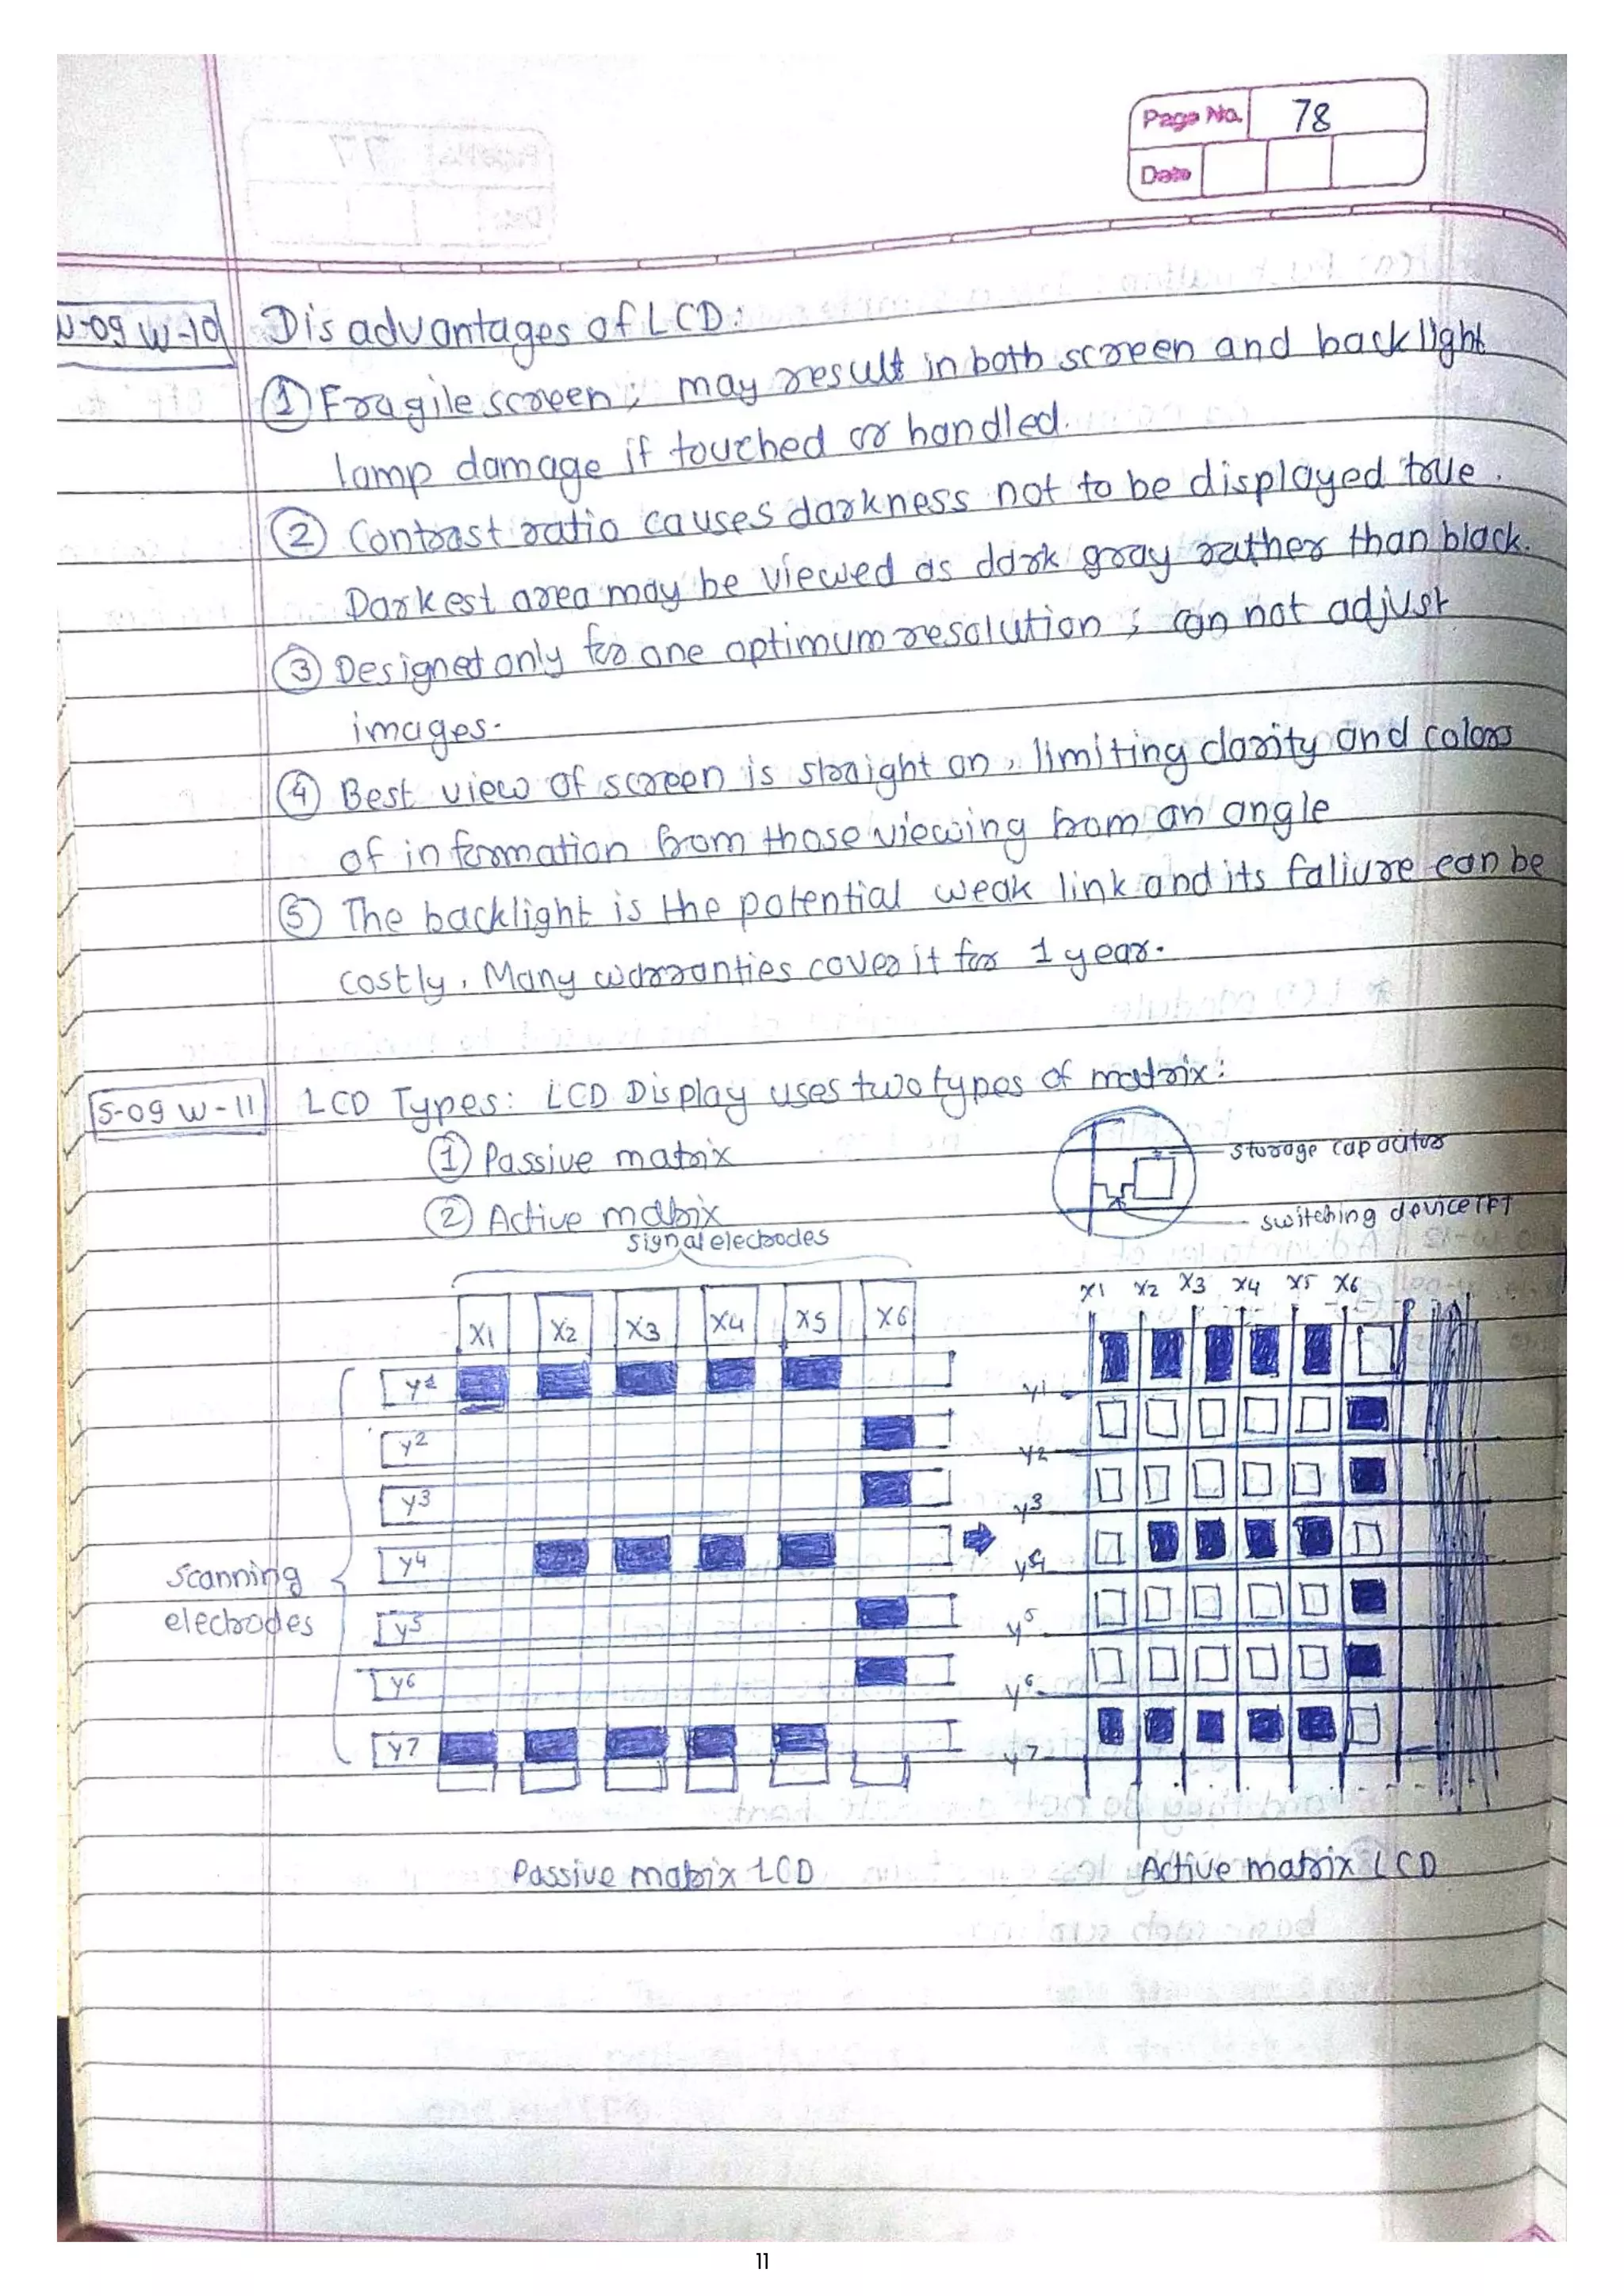 Page No. 78
Date
W-09 W-10 Disadvantages of LCD:
① Fragile screen; may result in both screen and backlight
lamp damage if touched or handled.
② Contrast ratio causes darkness not to be displayed true.
Darkest area may be viewed as dark gray rather than black.
③ Designed only for one optimum resolution; can not adjust
images.
④ Best view of screen is straight on, limiting clarity and colors
of information from those viewing from an angle
⑤ The backlight is the potential weak link and its faliure can be
costly, Many warranties cover it for 1 year.
S-09 W-11 LCD Types: LCD Display uses two types of matrix:
① Passive matrix
storage capacitor
② Active matrix
switching device TFT
signal electrodes
X1 X2 X3 X4 X5 X6
X1 X2 X3 X4 X5 X6
y1
y2
y3
y4
y5
y6
y7
Scanning
electrodes
y1
y2
y3
y4
y5
y6
y7
Passive matrix LCD
Active matrix LCD
11